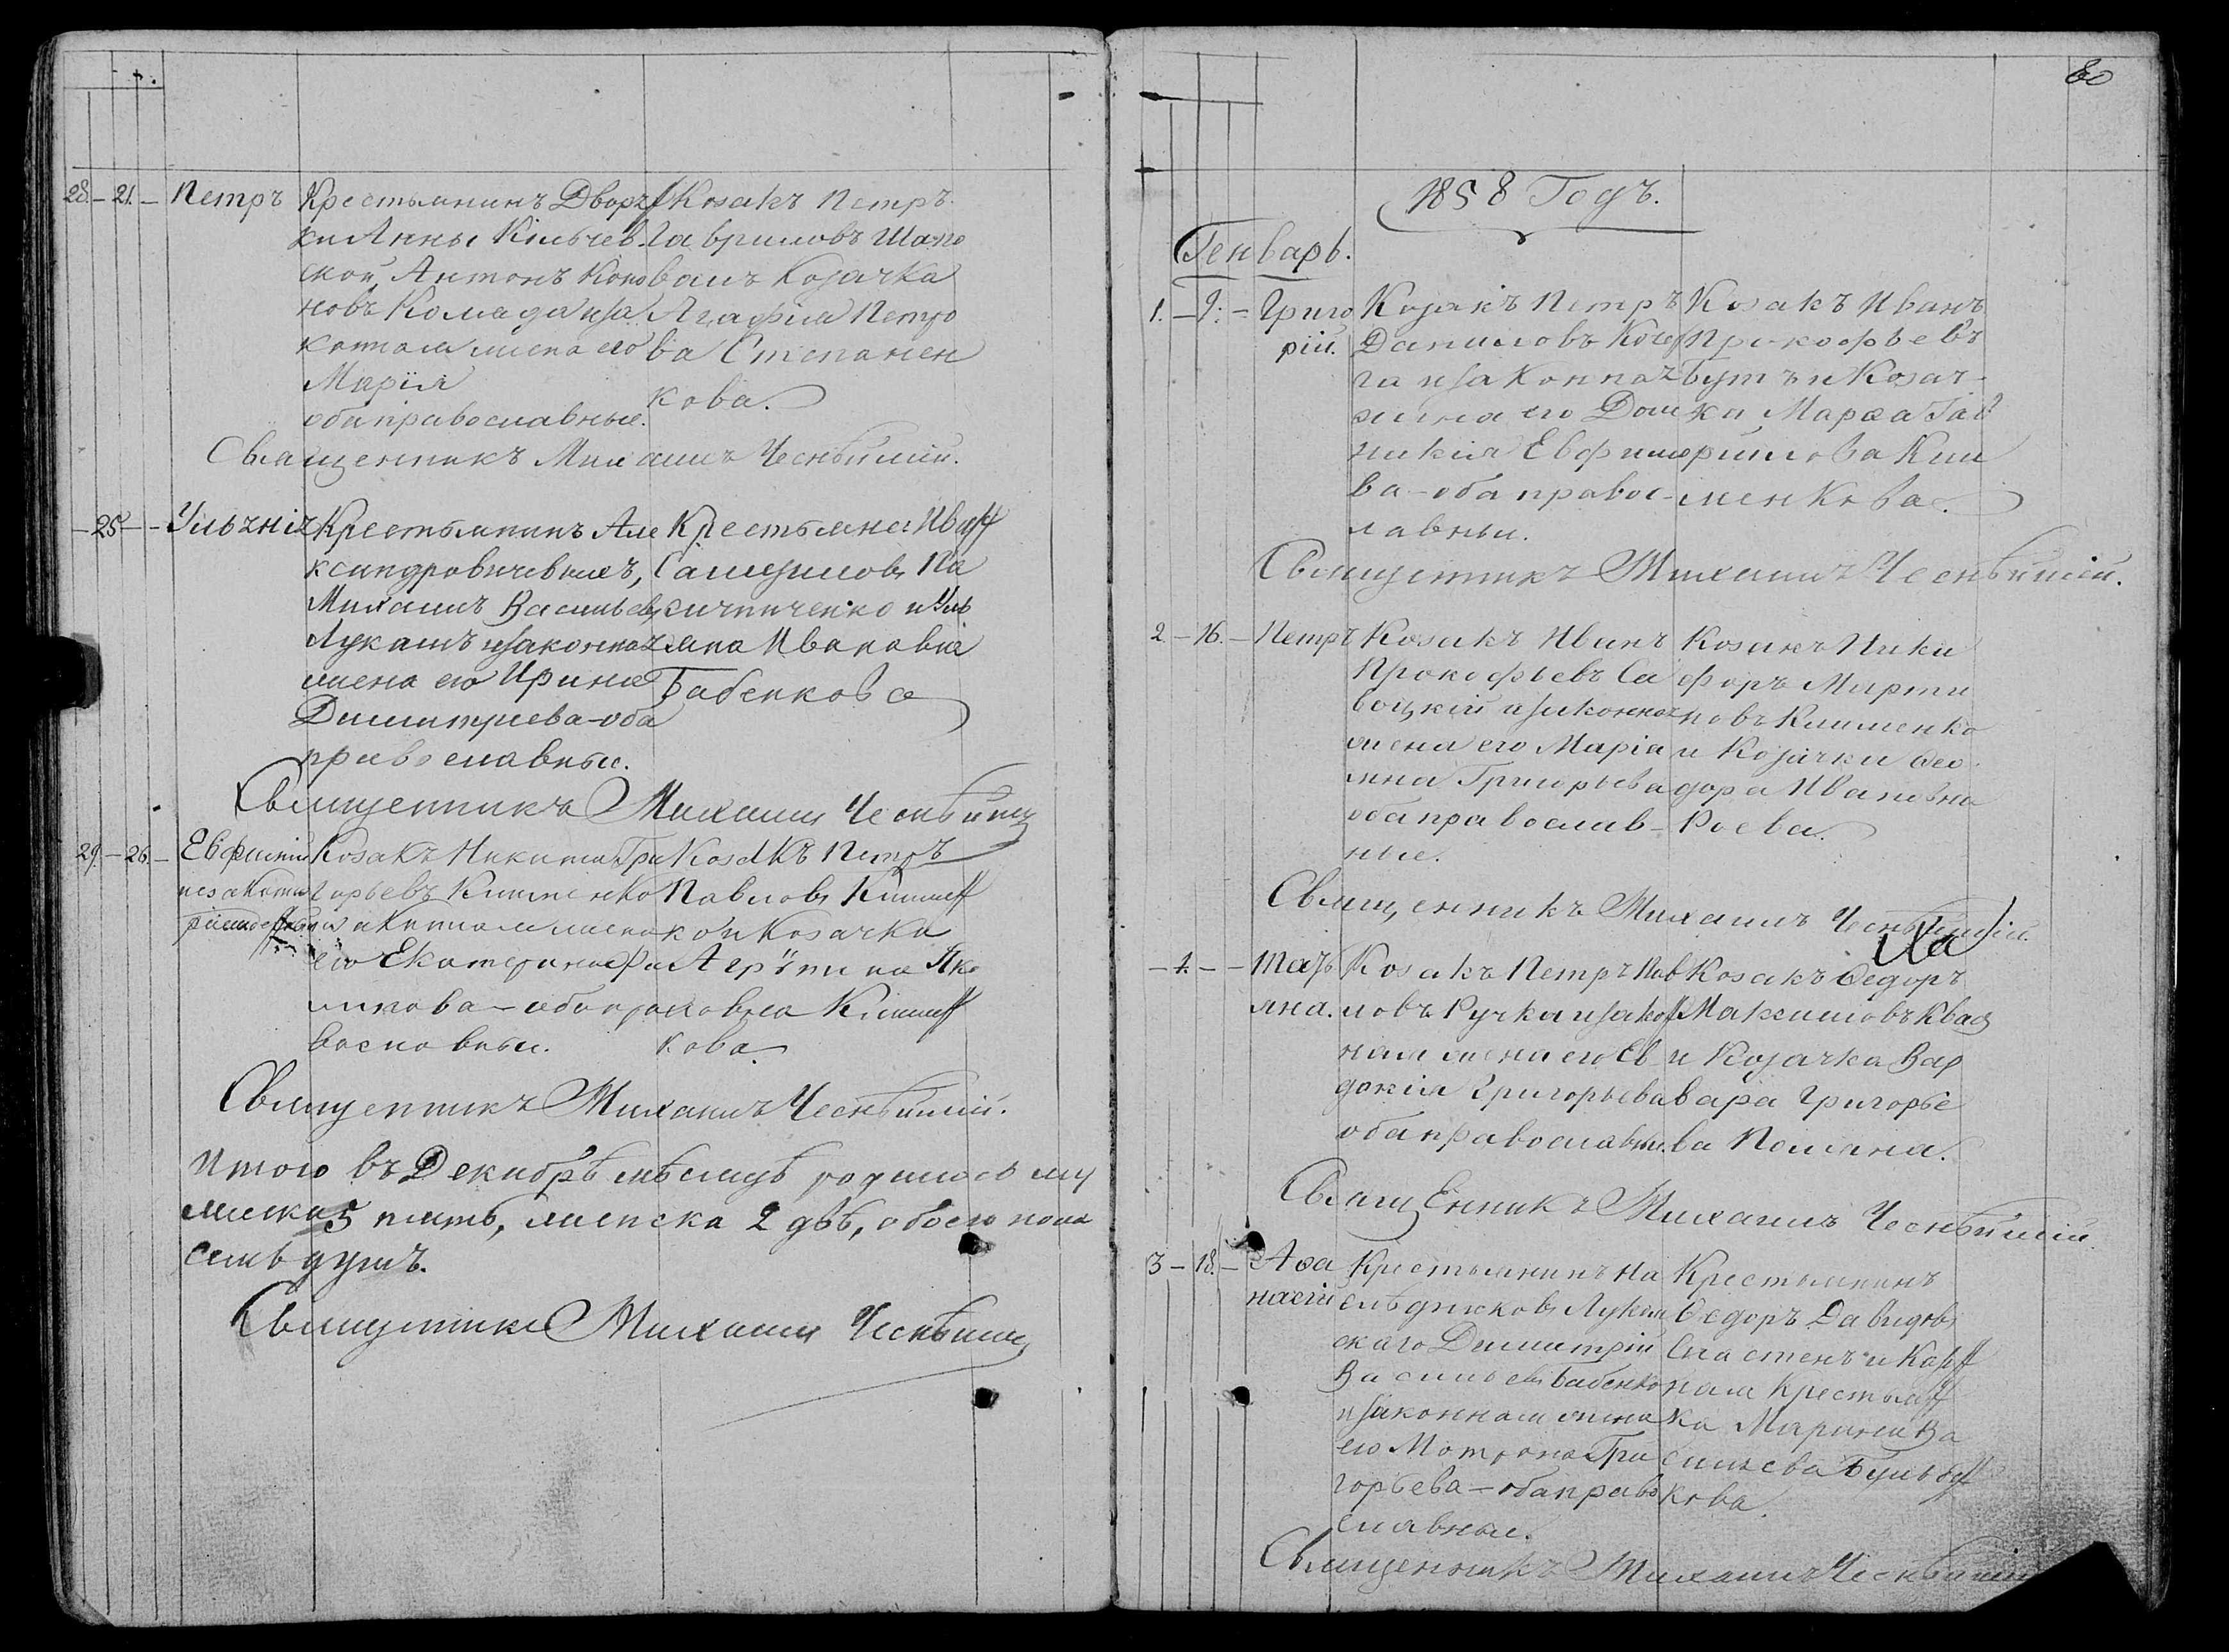 28. - 21. - Петръ Крестьянинъ Двор
ки Анны Кильчев
ской, Антонъ Коно
новъ Коляда и за
конная жена его
Марія
оба православные.
Козакъ Петръ
Гавриловъ Шапо
валъ Козачка
Агафія Петро
ва Степанен
кова.
Священникъ Михаилъ
- 25 - Крестьянинъ Але
ксандровичевыхъ,
Михаилъ Васильевъ
Лукашъ и законная
жена его Ирина
Димитриева - оба
православные.
Крестьяне Ив
Самуиловъ Па
ниченко и Уль
яна Ивановна
Бабенкова
Священникъ Михаилъ
29. - 26. - Евфимій
Козакъ Никита Гри
горьевъ Клименко
и законная жена
его Екатерина Фи
липова - оба пра
вославные.
Козакъ Петръ
Павловъ Климен
ко и Козачка
Агрипина Яко
вовна Климен
кова
Священникъ Михаилъ
Итого въ Декабрѣ мѣсяцѣ родилось му
жеска 5 пять, женска 2 двѣ, обоего пола
семь душъ.
Священникъ Михаилъ
80
1858 Годъ.
Генварь.
1. - 9. - Григо
рій.
Козакъ Петръ
Даниловъ
га и законная
жена его Дом
никія Евфимо
ва - оба правос-
лавныи.
Козакъ Иванъ
Прокофьевъ
Бутъ и Козач-
ка Марѳа Гав
рилова Кли
менкова.
Священникъ Михаилъ
2. - 16. - Петръ
Козакъ Иванъ
Прокофьевъ Са
воцкій и законная
жена его Маріа
мна Григорьева
оба православ-
ные.
Козакъ Ники
форъ Марти
новъ Клименко
и Козачки Ѳео
дора Ивановна
Роева.
Священникъ Михаилъ
- 4. - Татья
на.
Козакъ Петръ Пав
ловъ Ручка и закон
ная жена его Ев
докія Григорьева
оба православны.
Козакъ Ѳедоръ
Максимовъ Квац
ша
и Козачка Вар
вара Григорье
ва
Священникъ Михаилъ
3 - 18. - Аѳа
насій
Крестьянинъ На
слѣдниковъ Лукаш
скаго Димитрій
Васильевъ Бабенко
и законная жена
его Мотрона Гри
горьева - оба право
славные.
Крестьянинъ
Ѳедоръ Давидовъ
Сластенъ и
ная Крестьян
ка Марина Ва
силиева
кова.
Священникъ Михаилъ